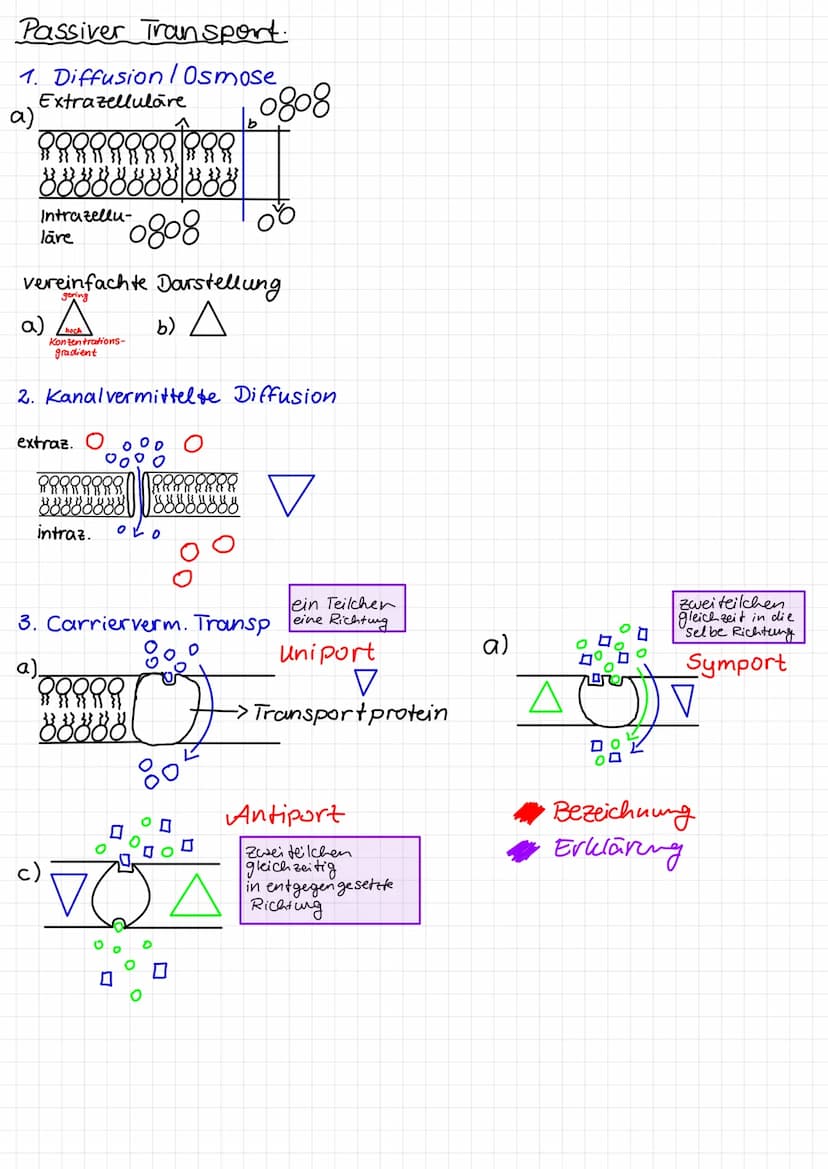 Passiver Transport.
1. Diffusion / Osmose
a)
Extrazelluläre
b
Intrazellu-
läre
vereinfachte Darstellung
a)
gering
hoch
Konzentrations-
gradient
b)
2. Kanalvermittelte Diffusion
extraz.
intraz.
3. Carrierverm. Transp
ein Teilchen
eine Richtung
a)
Uniport
Transportprotein
a)
zwei teilchen
gleichzeit in die
selbe Richtung
Symport
c)
Antiport
zwei teilchen
gleichzeitig
in entgegengesetzte
Richtung
Bezeichnung
Erklärung